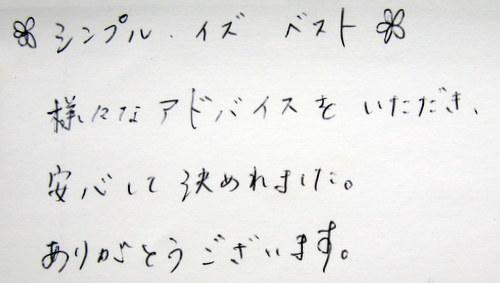 シンプル・イズ ベスト
様々なアドバイスをいただき、
安心して決めれました。
ありがとうございます。